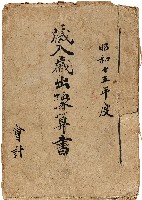 昭和十五年度
歳入歳出豫算書
會計